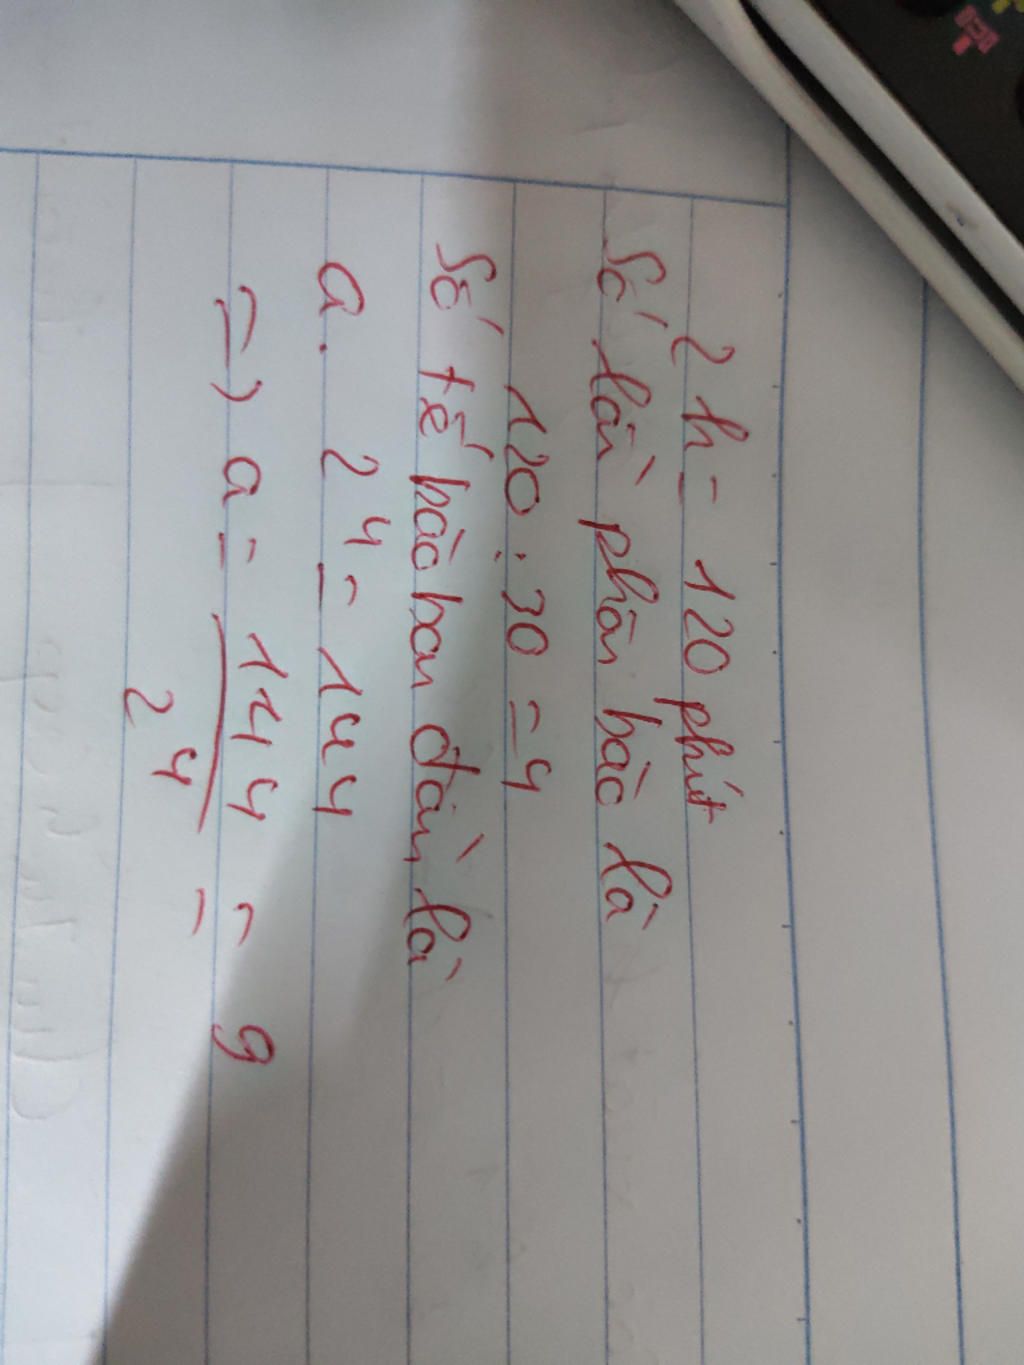 2h = 120 phút
Số lần phân bào là
120 : 30 = 4
Số tế bào ban đầu là
a. 2⁴ = 144
=> a = 144/2⁴ = = 9